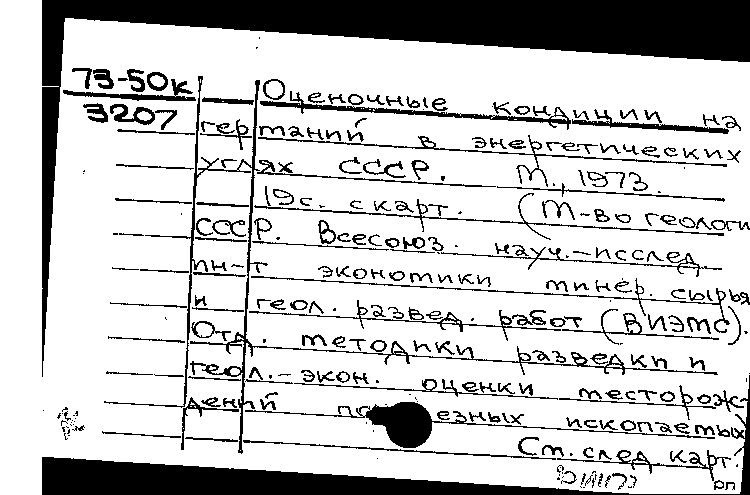 73-50к
3207
Оценочные кондиции на
германий в энергетических
углях СССР. М., 1973.
19с. с карт. (М-во геологи
СССР. Всесоюз. науч.-исслед.
ин-т экономики минер. сырья
и геол. развед. работ (ВИЭМС).
Отд. методики разведки и
геол.-экон. оценки месторож-
дений по езных ископаемых)
См. след. карт.